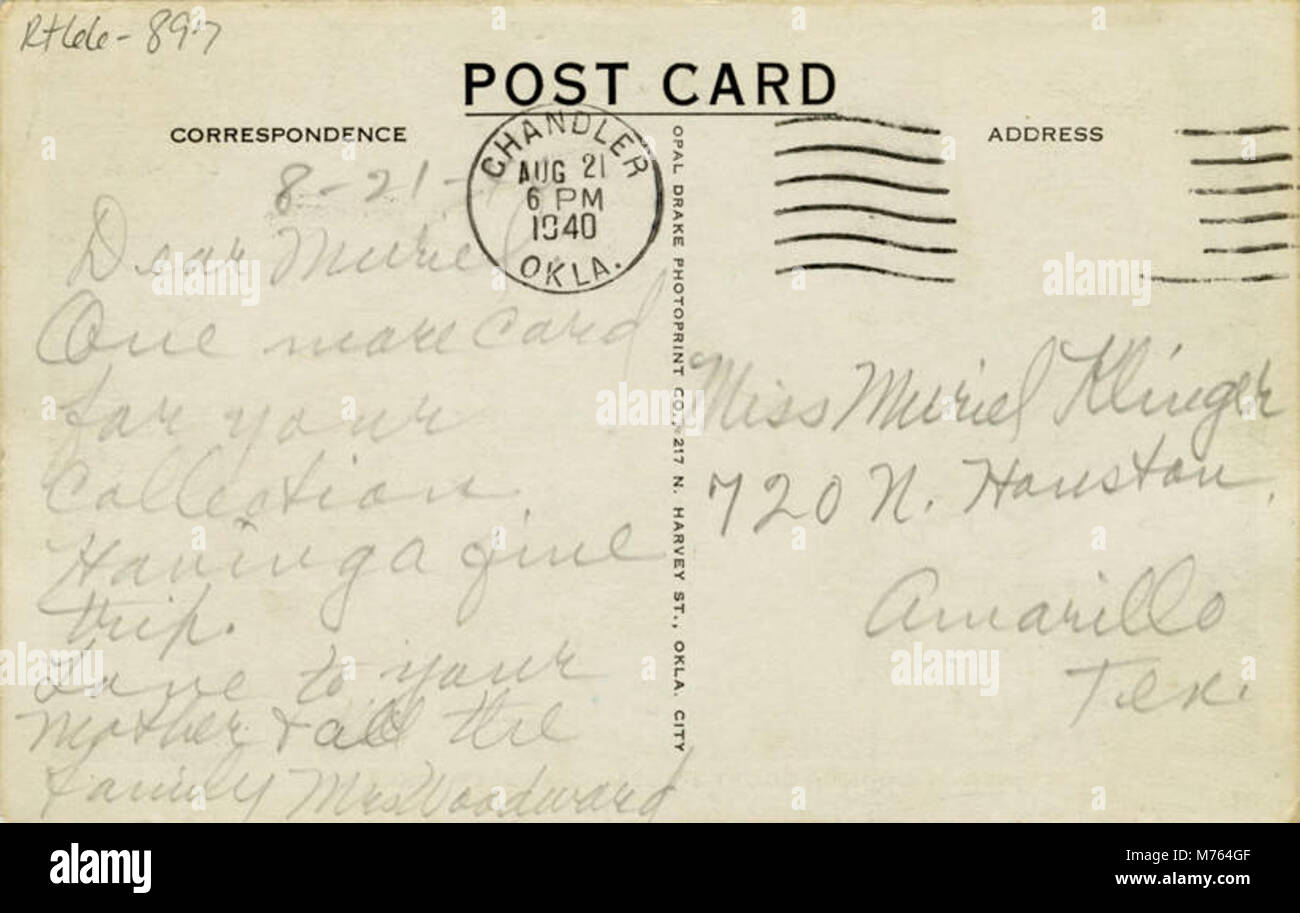 Rt66-89.7
POST CARD
CORRESPONDENCE
ADDRESS
CHANDLER
AUG 21
6 PM
1940
OKLA.
8-21-
Dear Muriel
One more card
for your
collection.
Having a fine
trip.
Love to your
Mother & all the
family Mrs Woodward
OPAL DRAKE PHOTOPRINT CO., 217 N. HARVEY ST., OKLA. CITY
Miss Muriel Klinger
720 N. Houston.
Amarillo
Tex.
alamy
a
alamy stock photo
M764GF
www.alamy.com